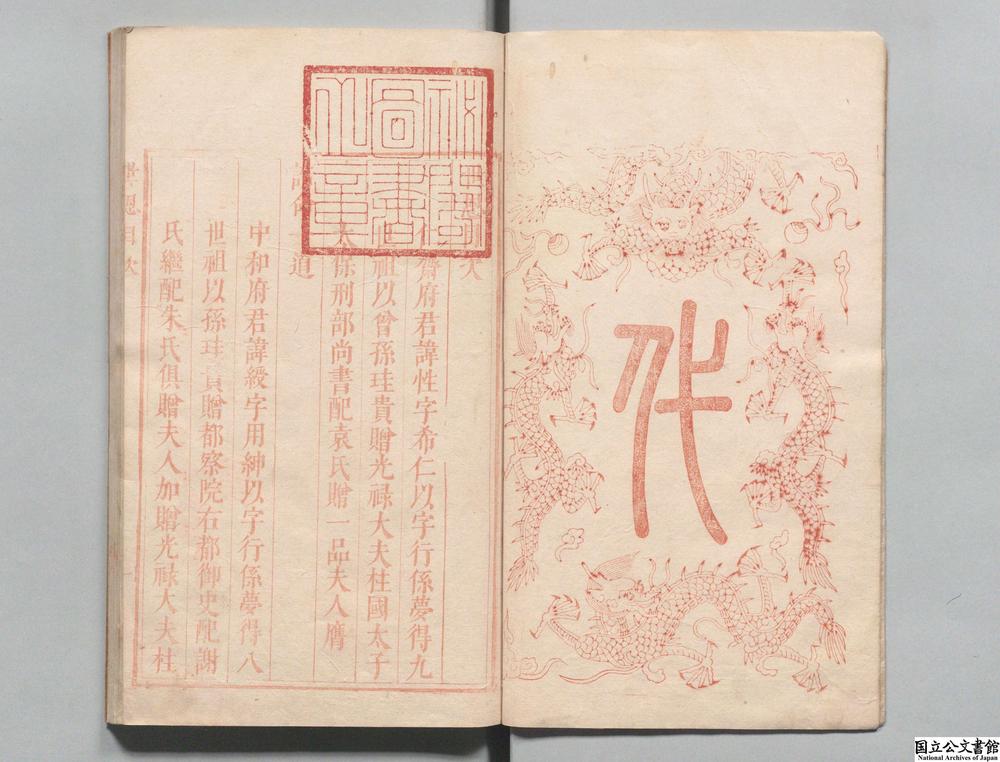 代
秘閣圖書之章
次
齋府君諱性字希仁以字行係夢得九
祖以曾孫珪貴贈光祿大夫柱國太子
太保刑部尚書配袁氏贈一品夫人膺
誥命道
中和府君諱綬字用紳以字行係夢得八
世祖以孫珪貴贈都察院右都御史配謝
氏繼配朱氏俱贈夫人加贈光祿大夫柱
恩目次
国立公文書館
National Archives of Japan